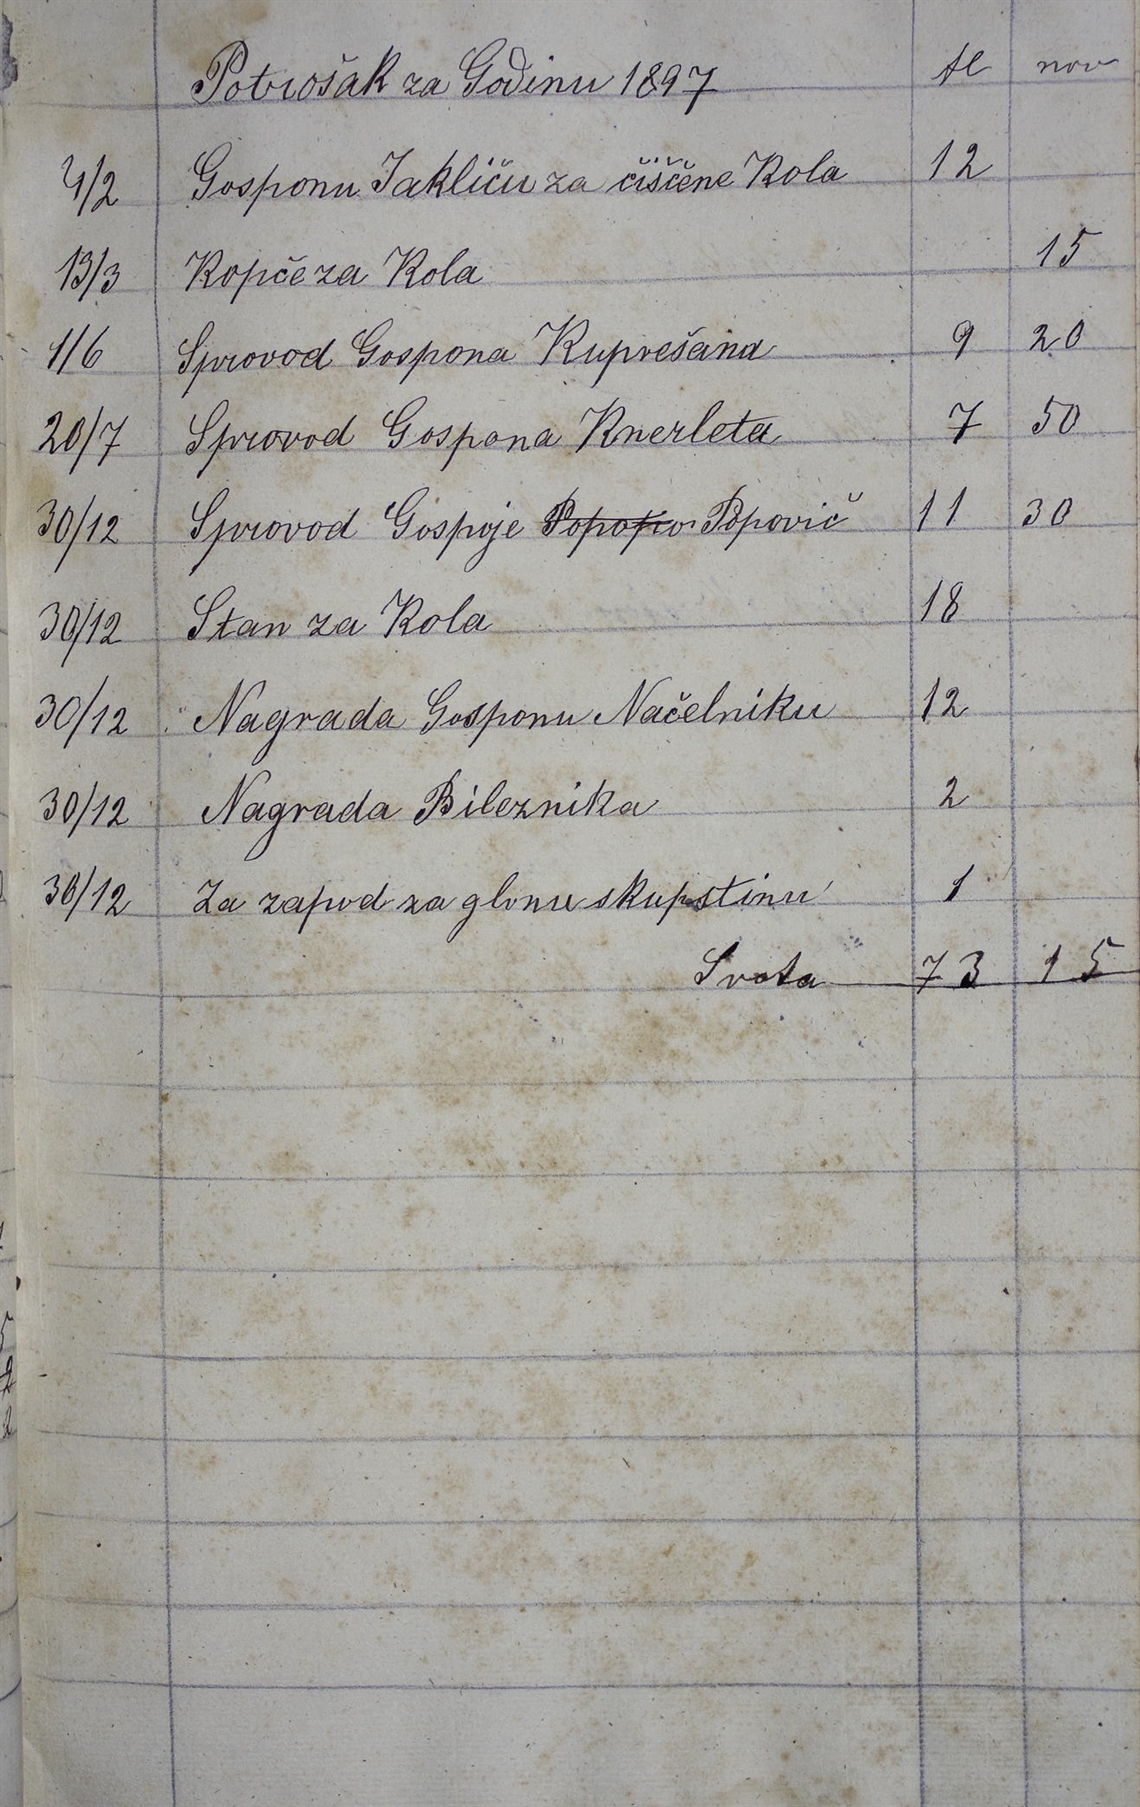 Potrošak za Godinu 1897 fl nov
4/2 Gosponu Jakliću za čiščene Kola 12
13/3 Kopče za Kola 15
1/6 Sprovod Gospona Kuprešana 9 20
20/7 Sprovod Gospona Knerleta 7 50
30/12 Sprovod Gospoje Popovič 11 30
30/12 Stan za Kola 18
30/12 Nagrada Gosponu Načelniku 12
30/12 Nagrada Bileznika 2
30/12 Za zapvd za glvnu skupstinu 1
Svota 73 15